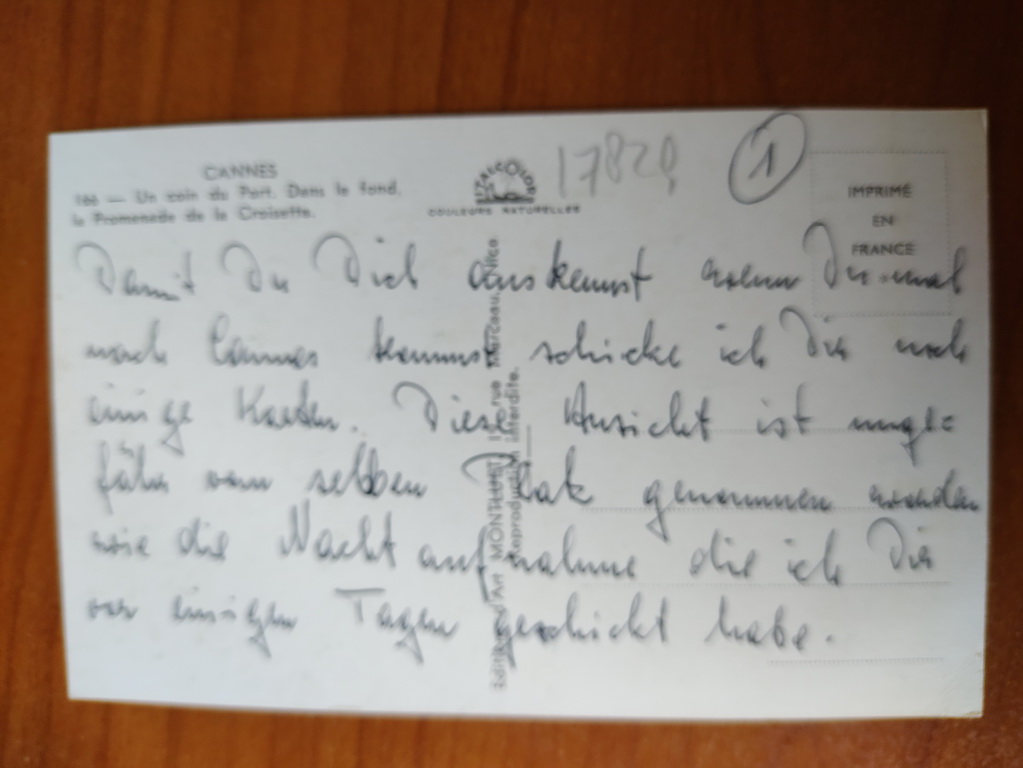 CANNES
166 — Un coin du Port. Dans le fond,
la Promenade de la Croisette.
COULEURS NATURELLES
17829
1
IMPRIMÉ
EN
FRANCE
Damit Du Dich auskennst wenn Du mal
nach Cannes kommst schicke ich Dir noch
einige Karten. Diese Ansicht ist unge=
fähr vom selben Platz genommen worden
wie die Nachtaufnahme die ich Dir
vor einigen Tagen geschickt habe.
Edition d'Art rue Marceau, Nice
Reproduction interdite.